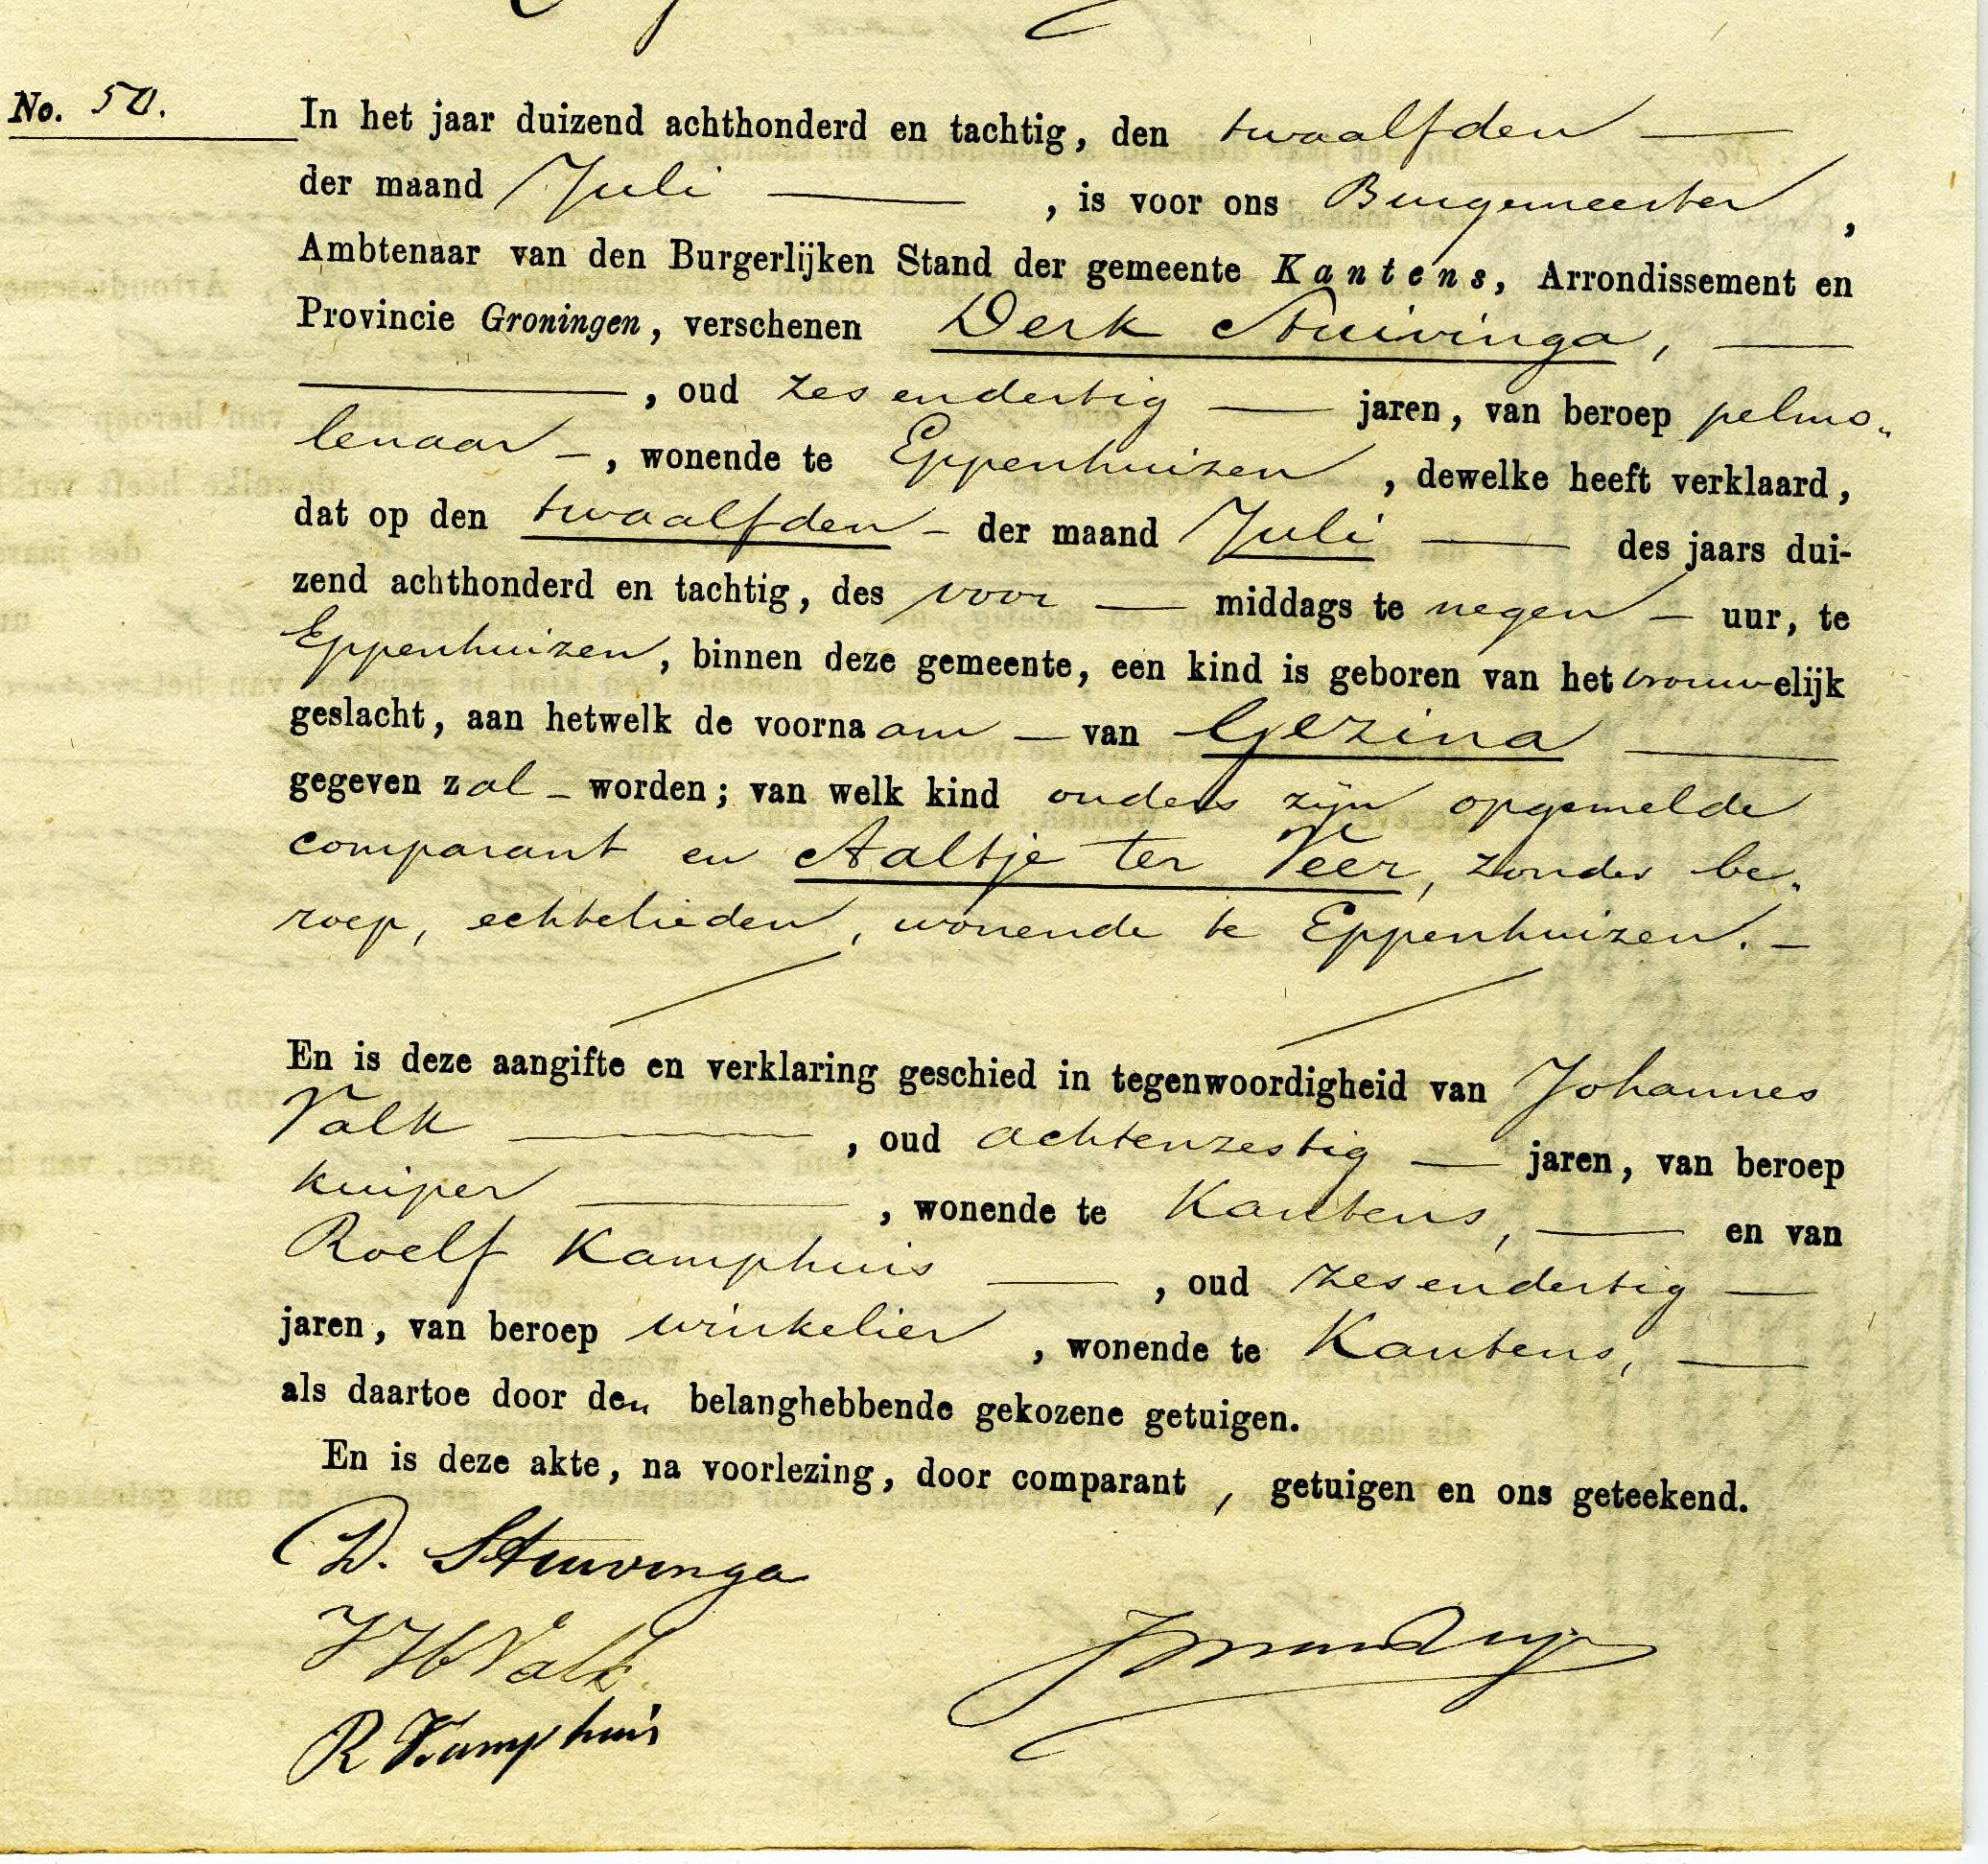 No. 50.
In het jaar duizend achthonderd en tachtig, den twaalfden —
der maand Juli — , is voor ons Burgemeester ,
Ambtenaar van den Burgerlijken Stand der gemeente Kantens, Arrondissement en
Provincie Groningen, verschenen Derk Stuivinga, —
— , oud zesendertig — jaren, van beroep pelmo„
lenaar – , wonende te Eppenhuizen , dewelke heeft verklaard,
dat op den twaalfden – der maand Juli — des jaars dui-
zend achthonderd en tachtig, des voor — middags te negen – uur, te
Eppenhuizen, binnen deze gemeente, een kind is geboren van het vrouwelijk
geslacht, aan hetwelk de voornaam — van Gezina —
gegeven zal – worden; van welk kind ouders zijn opgemelde
comparant en Aaltje ter Veer, zonder be„
roep, echtelieden, wonende te Eppenhuizen. –
En is deze aangifte en verklaring geschied in tegenwoordigheid van Johannes
Valk — , oud achtenzestig — jaren, van beroep
kuiper — , wonende te Kantens, — en van
Roelf Kamphuis — , oud zesendertig —
jaren, van beroep winkelier , wonende te Kantens, —
als daartoe door den belanghebbende gekozene getuigen.
En is deze akte, na voorlezing, door comparant , getuigen en ons geteekend.
D. Stuivinga
J H Valk.
R Kamphuis